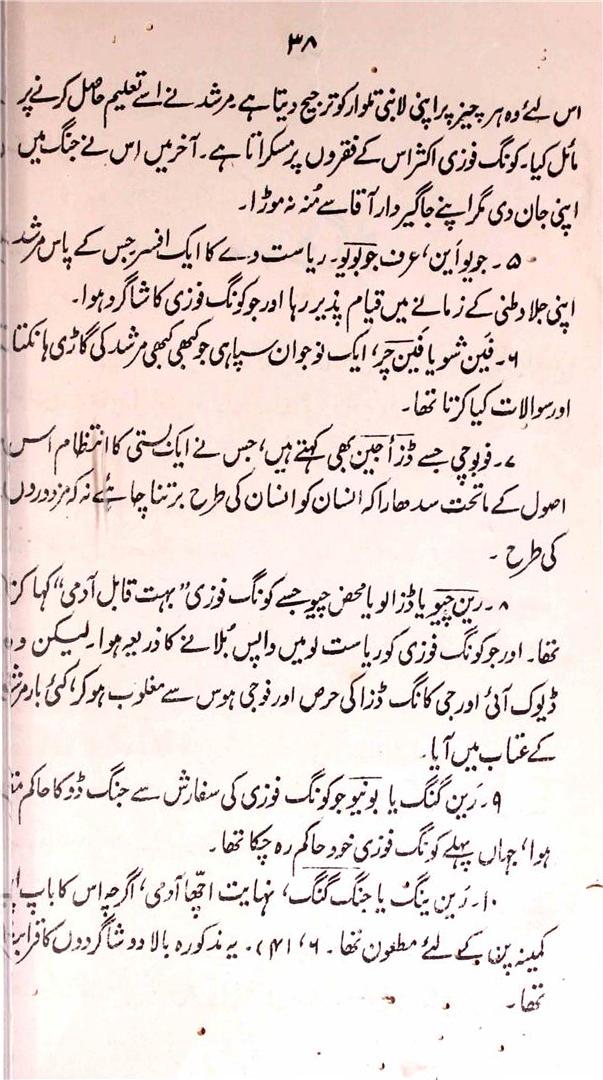 ۳۸
اس لئے وہ ہر چیز پر اپنی لانبی تلوار کو ترجیح دیتا ہے۔ مرشد نے اسے تعلیم حاصل کرنے پر
مائل کیا۔ کونگ فوزی اکثر اس کے فقروں پر مسکراتا ہے۔ آخر میں اس نے جنگ میں
اپنی جان دی مگر اپنے جاگیردار آقا سے مُنہ نہ موڑا۔
۵۔ جویو اَین، عرف جوبویو۔ ریاست وے کا ایک افسر جس کے پاس مرشد
اپنی جلاوطنی کے زمانے میں قیام پذیر رہا اور جو کونگ فوزی کا شاگرد ہوا۔
۶۔ فَین شو یا فَین چر، ایک نوجوان سپاہی جو کبھی کبھی مرشد کی گاڑی ہانکتا
اور سوالات کیا کرتا تھا۔
۷۔ فوبوچی جسے ڈزأجین بھی کہتے ہیں، جس نے ایک بستی کا انتظام اس
اصول کے ماتحت سدھارا کہ انسان کو انسان کی طرح برتنا چاہئے نہ کہ مزدوروں
کی طرح ۔
۸۔ رین چیو یا ڈزالو یا محض چیو جسے کونگ فوزی "بہت قابل آدمی" کہا کرتا
تھا۔ اور جو کونگ فوزی کو ریاست لو میں واپس بُلانے کا ذریعہ ہوا۔ لیکن وہ
ڈیوک آئی اور جی کانگ ڈزا کی حرص اور فوجی ہوس سے مغلوب ہو کر، کئی بار مرشد
کے عتاب میں آیا۔
۹۔ رَین گنگ یا بونیو جو کونگ فوزی کی سفارش سے جنگ ڈو کا حاکم
ہوا، جہاں پہلے کونگ فوزی خود حاکم رہ چکا تھا۔
۱۰۔ رَین ینگ یا جنگ گنگ، نہایت اچھا آدمی، اگرچہ اس کا باپ
کمینہ پن کے لئے مطعون تھا۔ ۶، (۴)۔ یہ مذکورہ بالا دو شاگردوں کا
تھا۔